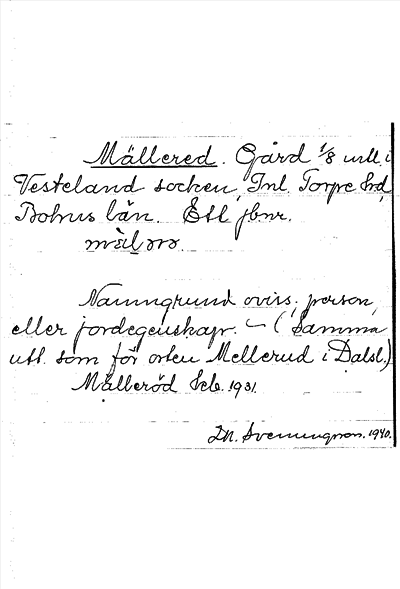 Mällered. Gård 1/8 mtl. i
Vesteland socken, Inl. Torpe hd,
Bohus län. Ett jbnr.
Namngrund oviss; person,
eller jordegenskap. – (Samma
utt. som för orten Mellerud i Dalsl.)
Mälleröd Jeb. 1931.
D.N. Svenungson. 1940.